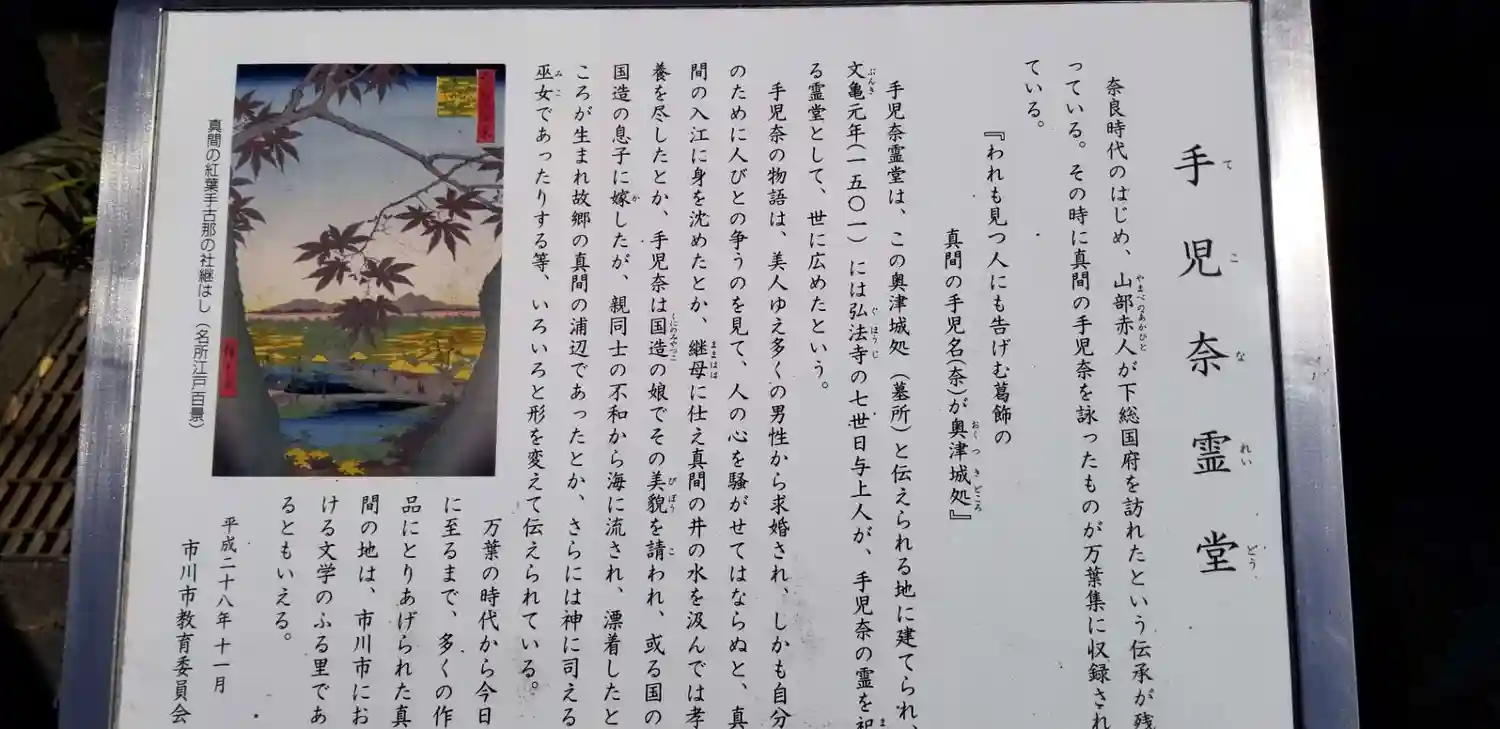 手児奈霊堂
奈良時代のはじめ、山部赤人が下総国府を訪れたという伝承が残
っている。その時に真間の手児奈を詠ったものが万葉集に収録され
ている。
『われも見つ人にも告げむ葛飾の
真間の手児名(奈)が奥津城処』
手児奈霊堂は、この奥津城処（墓所）と伝えられる地に建てられ、
文亀元年(一五〇一)には弘法寺の七世日与上人が、手児奈の霊を祀
る霊堂として、世に広めたという。
手児奈の物語は、美人ゆえ多くの男性から求婚され、しかも自分
のために人びとの争うのを見て、人の心を騒がせてはならぬと、真
間の入江に身を沈めたとか、継母に仕え真間の井の水を汲んでは孝
養を尽したとか、手児奈は国造の娘でその美貌を請われ、或る国の
国造の息子に嫁したが、親同士の不和から海に流され、漂着したと
ころが生まれ故郷の真間の浦辺であったとか、さらには神に司える
巫女であったりする等、いろいろと形を変えて伝えられている。
万葉の時代から今日
に至るまで、多くの作
品にとりあげられた真
間の地は、市川市にお
ける文学のふる里であ
るともいえる。
平成二十八年十一月
市川市教育委員会
真間の紅葉手古那の社継はし（名所江戸百景）